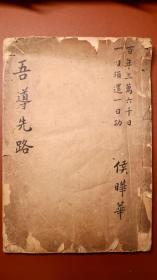 百年三萬六千日
一日須還一日功
侯曄華
吾導先路